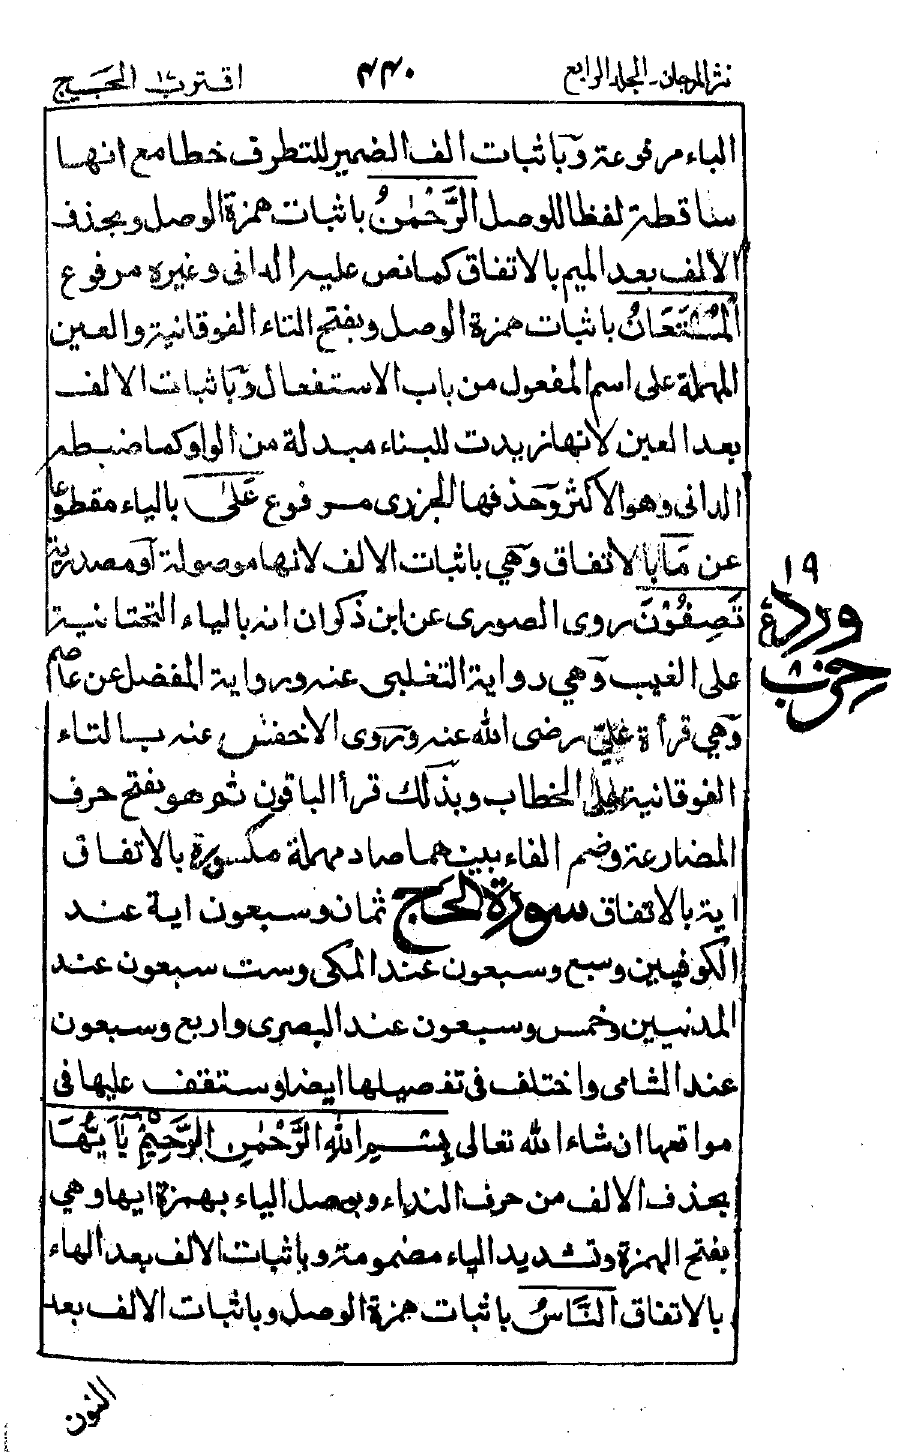 نثر المرجان ـ الجلد الرابع ٤٤٠ اقترب ١٧ الحج
الباء مرفوعة وَبا ثبات الف الضمير للتطرف خطا مع انها
ساقطة لفظا للوصل الرَّحْمٰنُ با ثبات همزة الوصل و بحذف
الالف بعد الميم بالاتفاق كما نص عليه الدانى وغيره مرفوع
الْمُسْتَعَانُ با ثبات همزة الوصل و بفتح التاء الفوقانية والعين
المهملة على اسم المفعول من باب الاستفعال وَبا ثبات الالف
بعد العين لانها زيدت للبناء مبدلة من الواو كما ضبطه
الدانى وهو الاكثر وَحذفها الجزرى مرفوع عَلىٰ بالياء مقطوعا
عن مَا با لاتفاق وَهي با ثبات الالف لانها موصولة اَو مصدرية
تَصِفُوْنَ روى الصورى عن ابن ذكوان انه بالياء التحتانية
على الغيب وَهي رواية التغلبى عنه ورواية المفضل عن عاصم
وَهي قرأة عَلِيّ رضى الله عنه وَروى الاخفش عنه بالتاء
الفوقانية على الخطاب وبذٰلك قرأ الباقون ثم هو بفتح حرف
المضارعة وضم الفاء بينهما صاد مهملة مكسورة بالاتفاق
اية بالاتفاق سورة الحج ثمان وسبعون اية عند
الكوفيين وسبع وسبعون عند المكى وست سبعون عند
المدنيين وخمس وسبعون عند البصرى واربع وسبعون
عند الشامى واختلف فى تفصيلها ايضا وستقف عليها فى
مواقعها ان شاء الله تعالى بِسْمِ اللهِ الرَّحْمٰنِ الرَّحِيْمِ يٰٓاَيُّهَا
بحذف الالف من حرف النداء وبوصل الياء بهمزة ايها وهي
بفتح الهمزة وتشديد الياء مضمومة وبا ثبات الالف بعد الهاء
بالاتفاق النَّاسُ با ثبات همزة الوصل وبا ثبات الالف بعد
النون
١٩
ورد ع
حزب ٨